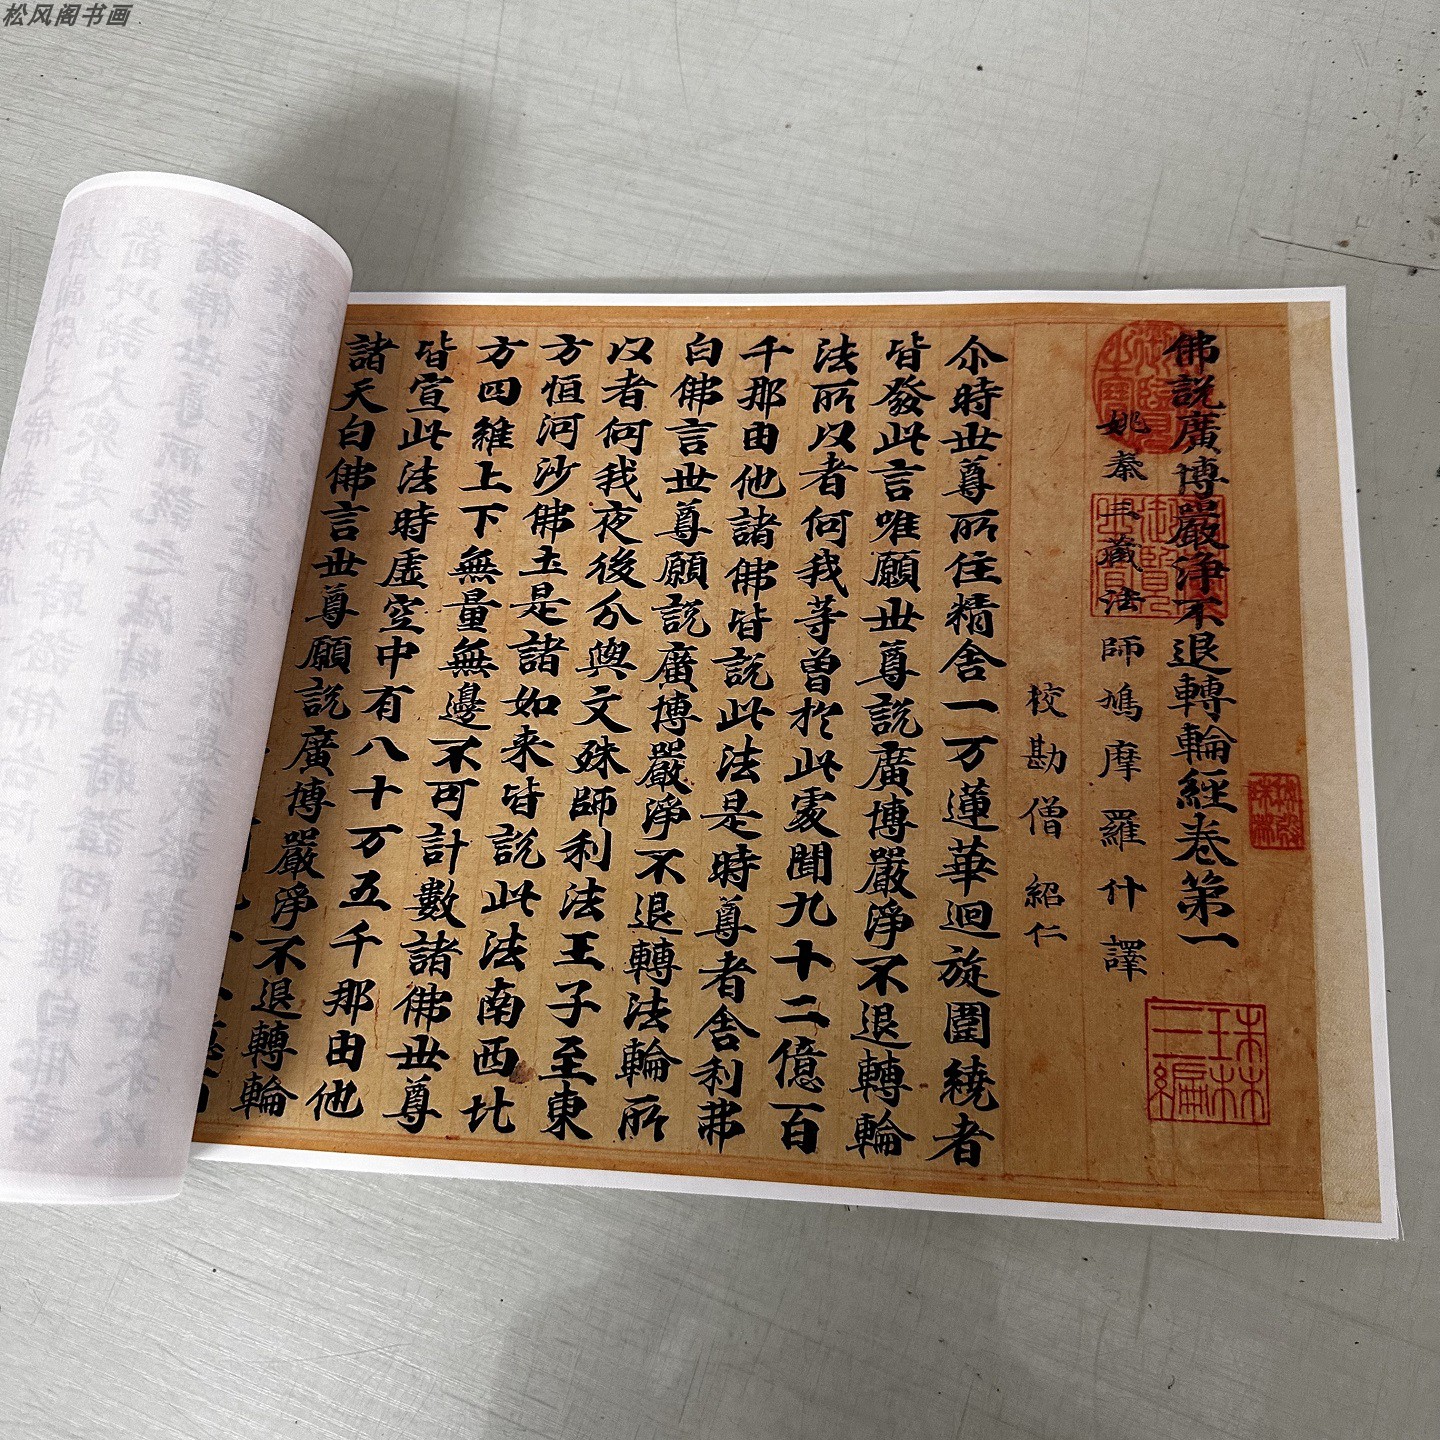 松风阁书画
佛說廣博嚴淨不退轉輪經卷第一
姚秦三藏法師鳩摩羅什譯
校勘僧紹仁
尒時世尊所住精舍一万蓮華迴旋圍繞者
皆發此言唯願世尊說廣博嚴淨不退轉輪
法所以者何我等曾於此處聞九十二億百
千那由他諸佛皆說此法是時尊者舍利弗
白佛言世尊願說廣博嚴淨不退轉法輪所
以者何我夜後分與文殊師利法王子至東
方恒河沙佛土是諸如来皆說此法南西北
方四維上下無量無邊不可計數諸佛世尊
皆宣此法時虛空中有八十万五千那由他
諸天白佛言世尊願說廣博嚴淨不退轉輪
秘殿珠林
珠林三編